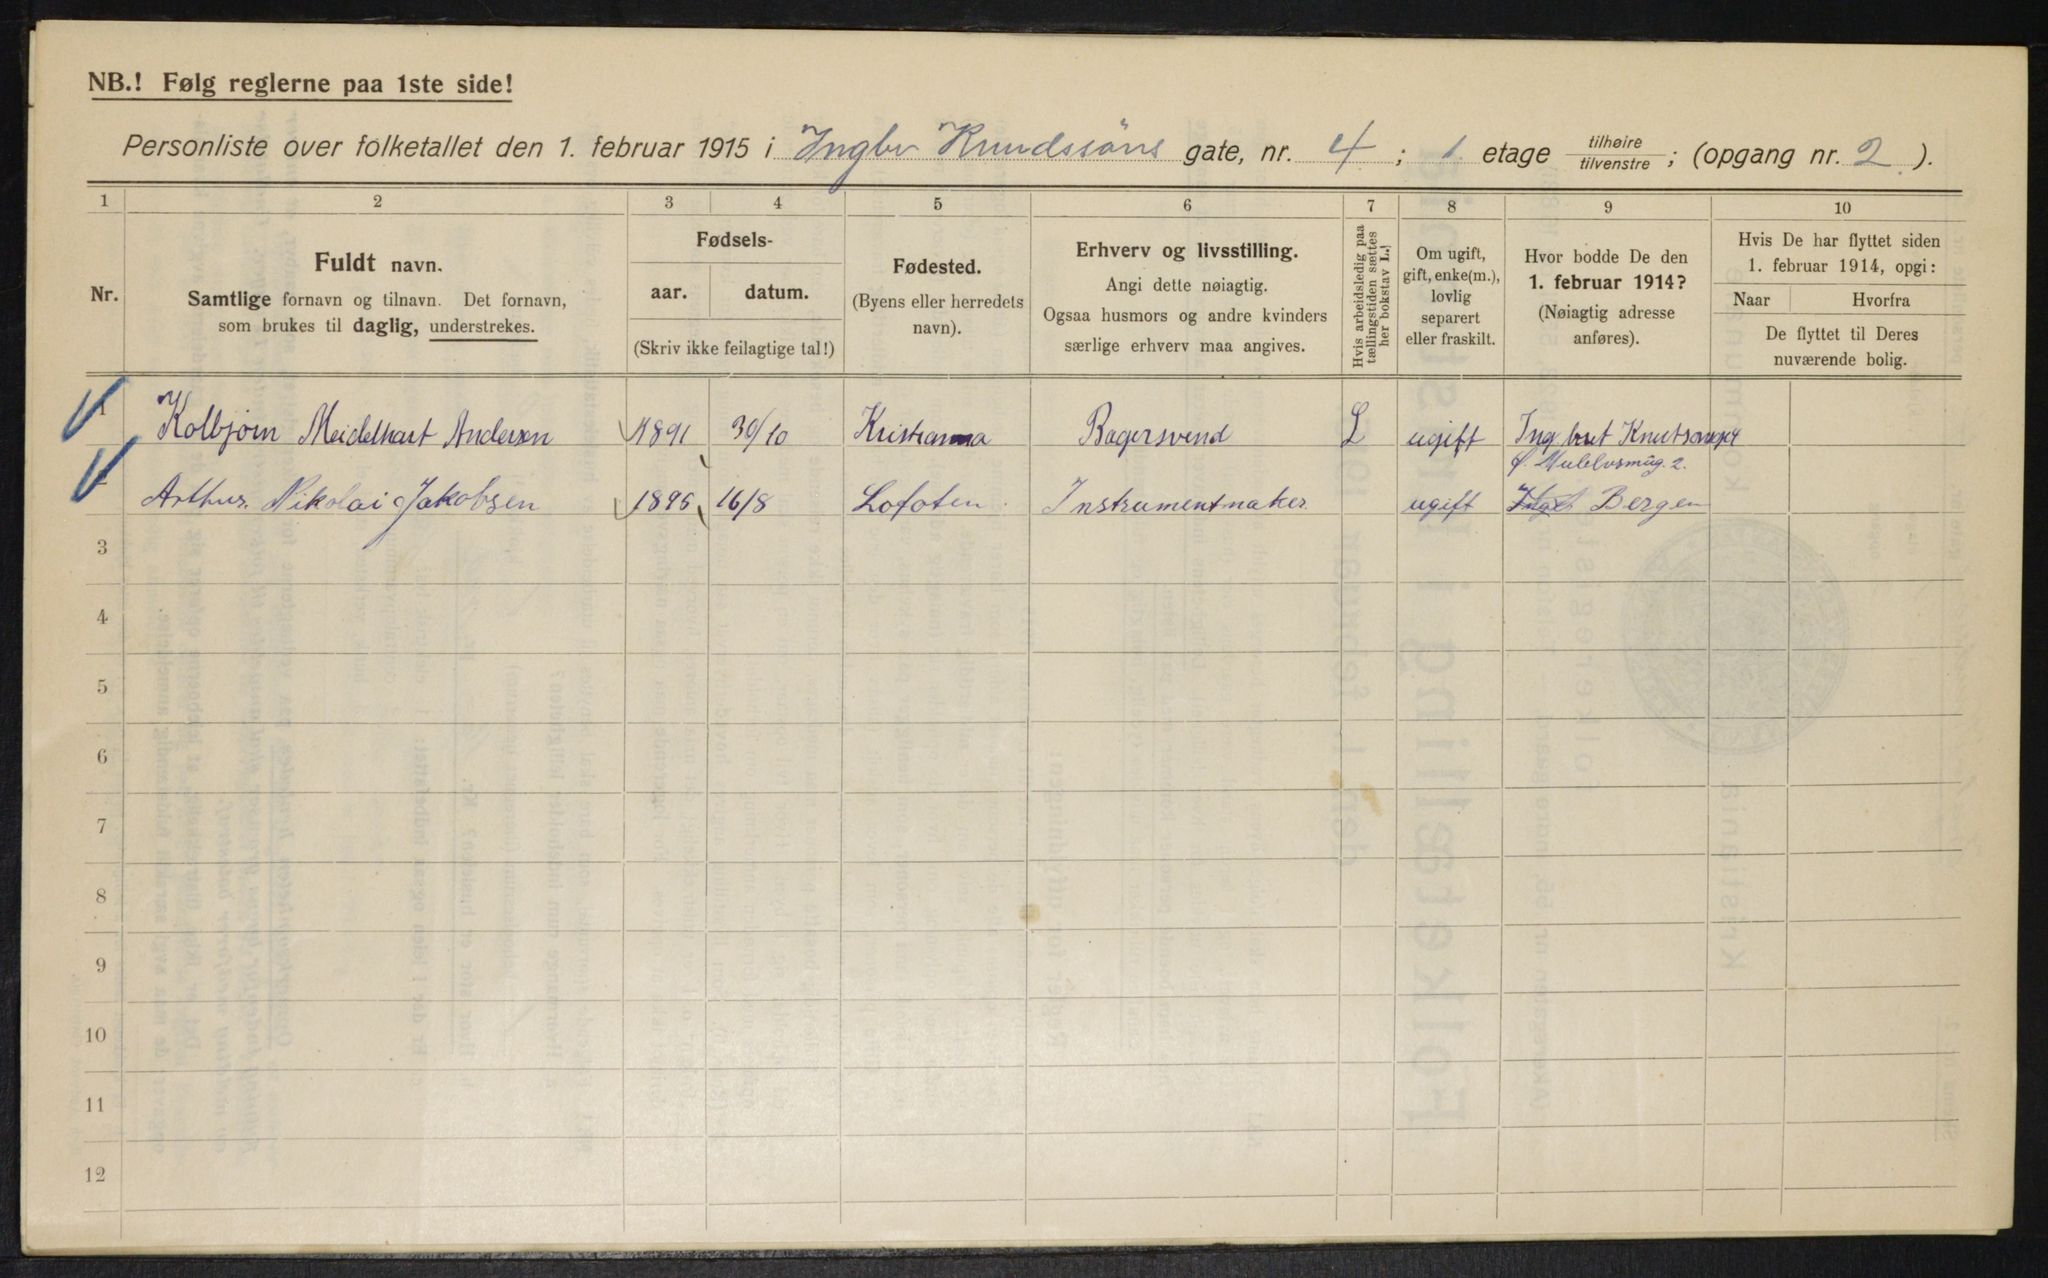 NB.! Følg reglerne paa 1ste side!
Personliste over folketallet den 1. februar 1915 i Ingbr Knudssöns gate, nr. 4 ; 1. etage tilhøire/tilvenstre ; (opgang nr. 2 ).
1 2 3 4 5 6 7 8 9 10
Nr.
Fuldt navn.
Samtlige fornavn og tilnavn. Det fornavn,
som brukes til daglig, understrekes.
Fødsels-
aar. datum.
(Skriv ikke feilagtige tal!)
Fødested.
(Byens eller herredets
navn).
Erhverv og livsstilling.
Angi dette nøiagtig.
Ogsaa husmors og andre kvinders
særlige erhverv maa angives.
Hvis arbeidsledig paa
tællingstiden sættes
her bokstav L.!
Om ugift,
gift, enke(m.),
lovlig
separert
eller fraskilt.
Hvor bodde De den
1. februar 1914?
(Nøiagtig adresse
anføres).
Hvis De har flyttet siden
1. februar 1914, opgi:
Naar Hvorfra
De flyttet til Deres
nuværende bolig.
1 Kolbjørn Meidelhart Andersen 1891 30/10 Kristiania Bagersvend L ugift Ingbret Knutsons
2.
Arthur Nikolai Jakobsen 1896 16/8 Lofoten Instrumentmaker ugift Bergen
3
4
5
6
7
8
9
10
11
12